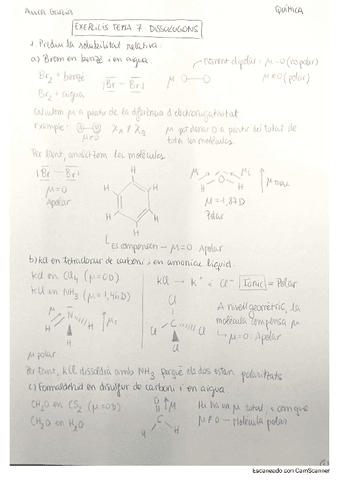 Química
EXERCICIS TEMA 7 DISSOLUCIONS
1. Prediu la solubilitat relativa:
a) Brom en benzè i en aigua
Br2 + benzè
Br2 + aigua
|Br - Br|
moment dipolar: μ=0 (no polar)
μ≠0 (polar)
Calculem μ a partir de la diferència d'electronegativitat
exemple: χA ≠ χB
μ pot donar 0 a partir del total de
tota la molècula.
Per tant, analitzem les molècules
|Br - Br|
μ=0
Apolar
H
H
H
H
H
H
H O H
μ=1,87D
Polar
Es compensen → μ=0 Apolar
b) KCl en tetraclorur de carboni i en amoníac líquid.
KCl en CCl4 (μ=0D)
KCl en NH3 (μ=1,46D)
KCl → K+ + Cl- Iònic = Polar
H N H
H
μ polar
Cl
Cl C Cl
Cl
A nivell geomètric, la
molècula compensa μ
μ=0. Apolar
Per tant, KCl dissoldrà amb NH3 perquè els dos estan polaritzats
c) Formaldehid en disulfur de carboni i en aigua.
CH2O en CS2 (μ=0D)
CH2O en H2O
O
C
H H
μ
Hi ha un μ total, i com que
μ≠0 → Molècula polar
Escaneado con CamScanner